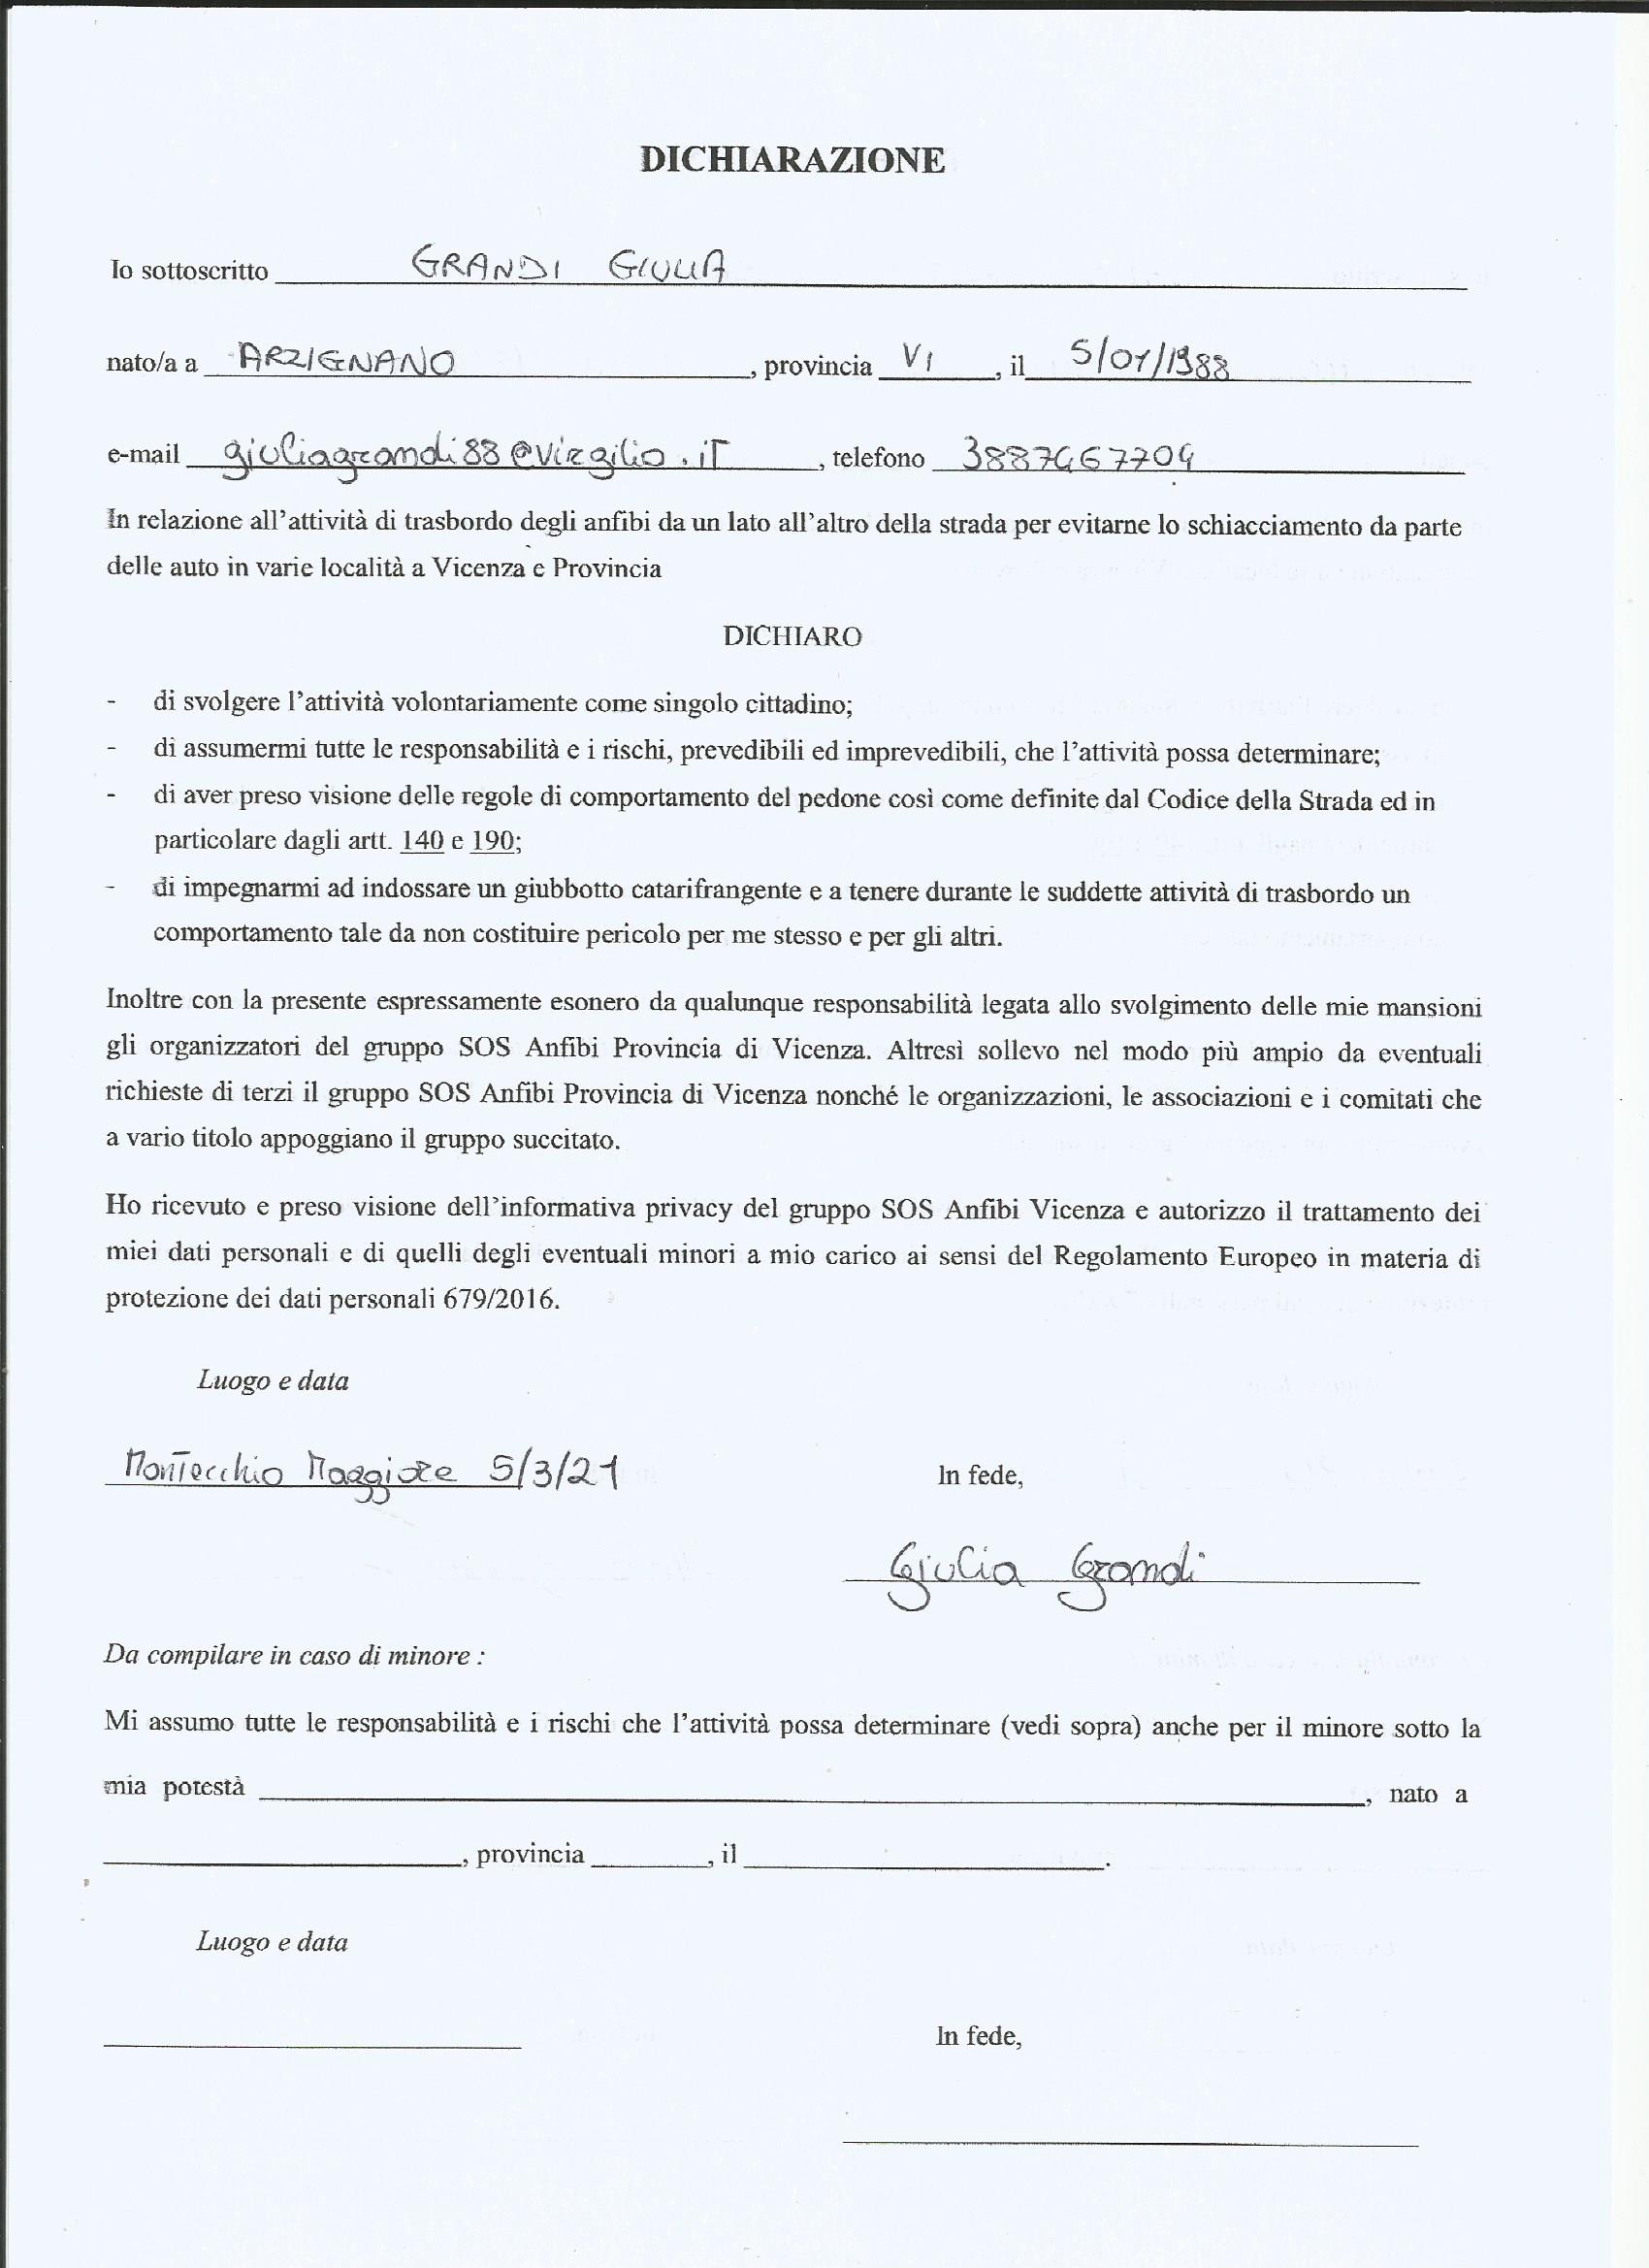 DICHIARAZIONE
Io sottoscritto GRANDI GIULIA
nato/a a ARZIGNANO, provincia VI, il 5/01/1988
e-mail giuliagrandi88@virgilio.it, telefono 3887467704
In relazione all'attività di trasbordo degli anfibi da un lato all'altro della strada per evitarne lo schiacciamento da parte
delle auto in varie località a Vicenza e Provincia
DICHIARO
- di svolgere l'attività volontariamente come singolo cittadino;
- di assumermi tutte le responsabilità e i rischi, prevedibili ed imprevedibili, che l'attività possa determinare;
- di aver preso visione delle regole di comportamento del pedone così come definite dal Codice della Strada ed in
particolare dagli artt. 140 e 190;
- di impegnarmi ad indossare un giubbotto catarifrangente e a tenere durante le suddette attività di trasbordo un
comportamento tale da non costituire pericolo per me stesso e per gli altri.
Inoltre con la presente espressamente esonero da qualunque responsabilità legata allo svolgimento delle mie mansioni
gli organizzatori del gruppo SOS Anfibi Provincia di Vicenza. Altresì sollevo nel modo più ampio da eventuali
richieste di terzi il gruppo SOS Anfibi Provincia di Vicenza nonché le organizzazioni, le associazioni e i comitati che
a vario titolo appoggiano il gruppo succitato.
Ho ricevuto e preso visione dell'informativa privacy del gruppo SOS Anfibi Vicenza e autorizzo il trattamento dei
miei dati personali e di quelli degli eventuali minori a mio carico ai sensi del Regolamento Europeo in materia di
protezione dei dati personali 679/2016.
Luogo e data
Montecchio Maggiore 5/3/21
In fede,
Giulia Grandi
Da compilare in caso di minore :
Mi assumo tutte le responsabilità e i rischi che l'attività possa determinare (vedi sopra) anche per il minore sotto la
mia potestà , nato a
, provincia , il .
Luogo e data
In fede,